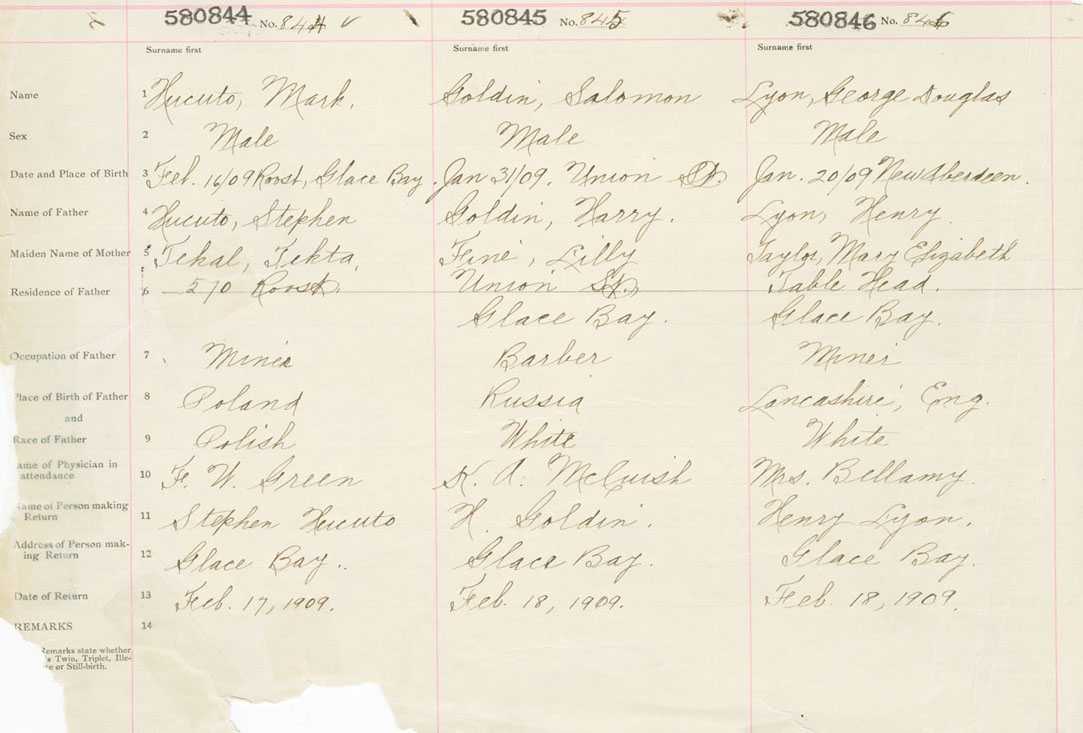 580844 No. 844 580845 No. 845 580846 No. 846
Surname first Surname first Surname first
Name 1 Hucuto, Mark. Goldin, Salomon Lyon, George Douglas
Sex 2 Male Male Male
Date and Place of Birth 3 Feb. 16/09 Roost, Glace Bay. Jan 31/09. Union St. Jan. 20/09 New Aberdeen.
Name of Father 4 Hucuto, Stephen Goldin, Harry. Lyon, Henry.
Maiden Name of Mother 5 Tekla, Fine, Lilly Taylor, Mary Elizabeth
Residence of Father 6 270 Roost, Union St, Table Head.
Glace Bay. Glace Bay.
Occupation of Father 7 Miner Barber Miner
Place of Birth of Father 8 Poland Russia Lancashire, Eng.
and
Race of Father 9 Polish White White
ame of Physician in
attendance 10 F. W. Green K. A. McCuish Mrs. Bellamy.
Name of Person making
Return 11 Stephen Hucuto H. Goldin. Henry Lyon.
Address of Person mak-
ing Return 12 Glace Bay.. Glace Bay. Glace Bay.
Date of Return 13 Feb. 17, 1909. Feb. 18, 1909. Feb. 18, 1909.
REMARKS 14
Remarks state whether
s Twin, Triplet, Ille-
te or Still-birth.